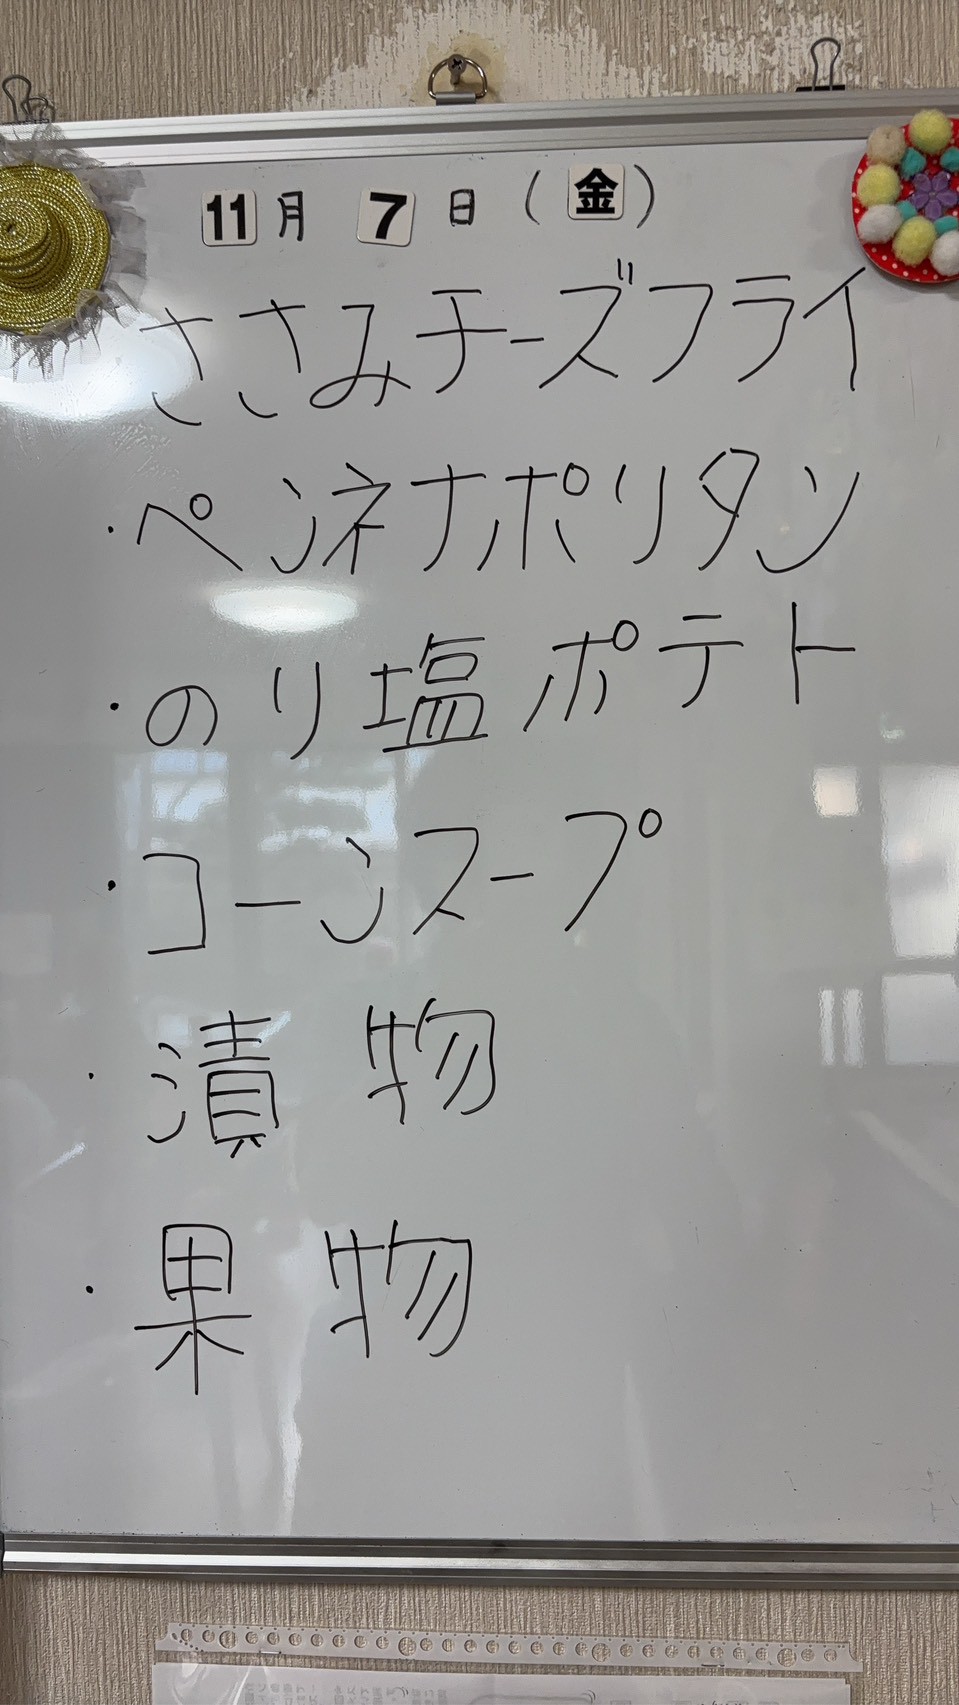 11月 7日(金)
ささみチーズフライ
・ペンネナポリタン
・のり塩ポテト
・コーンスープ
・漬物
・果物